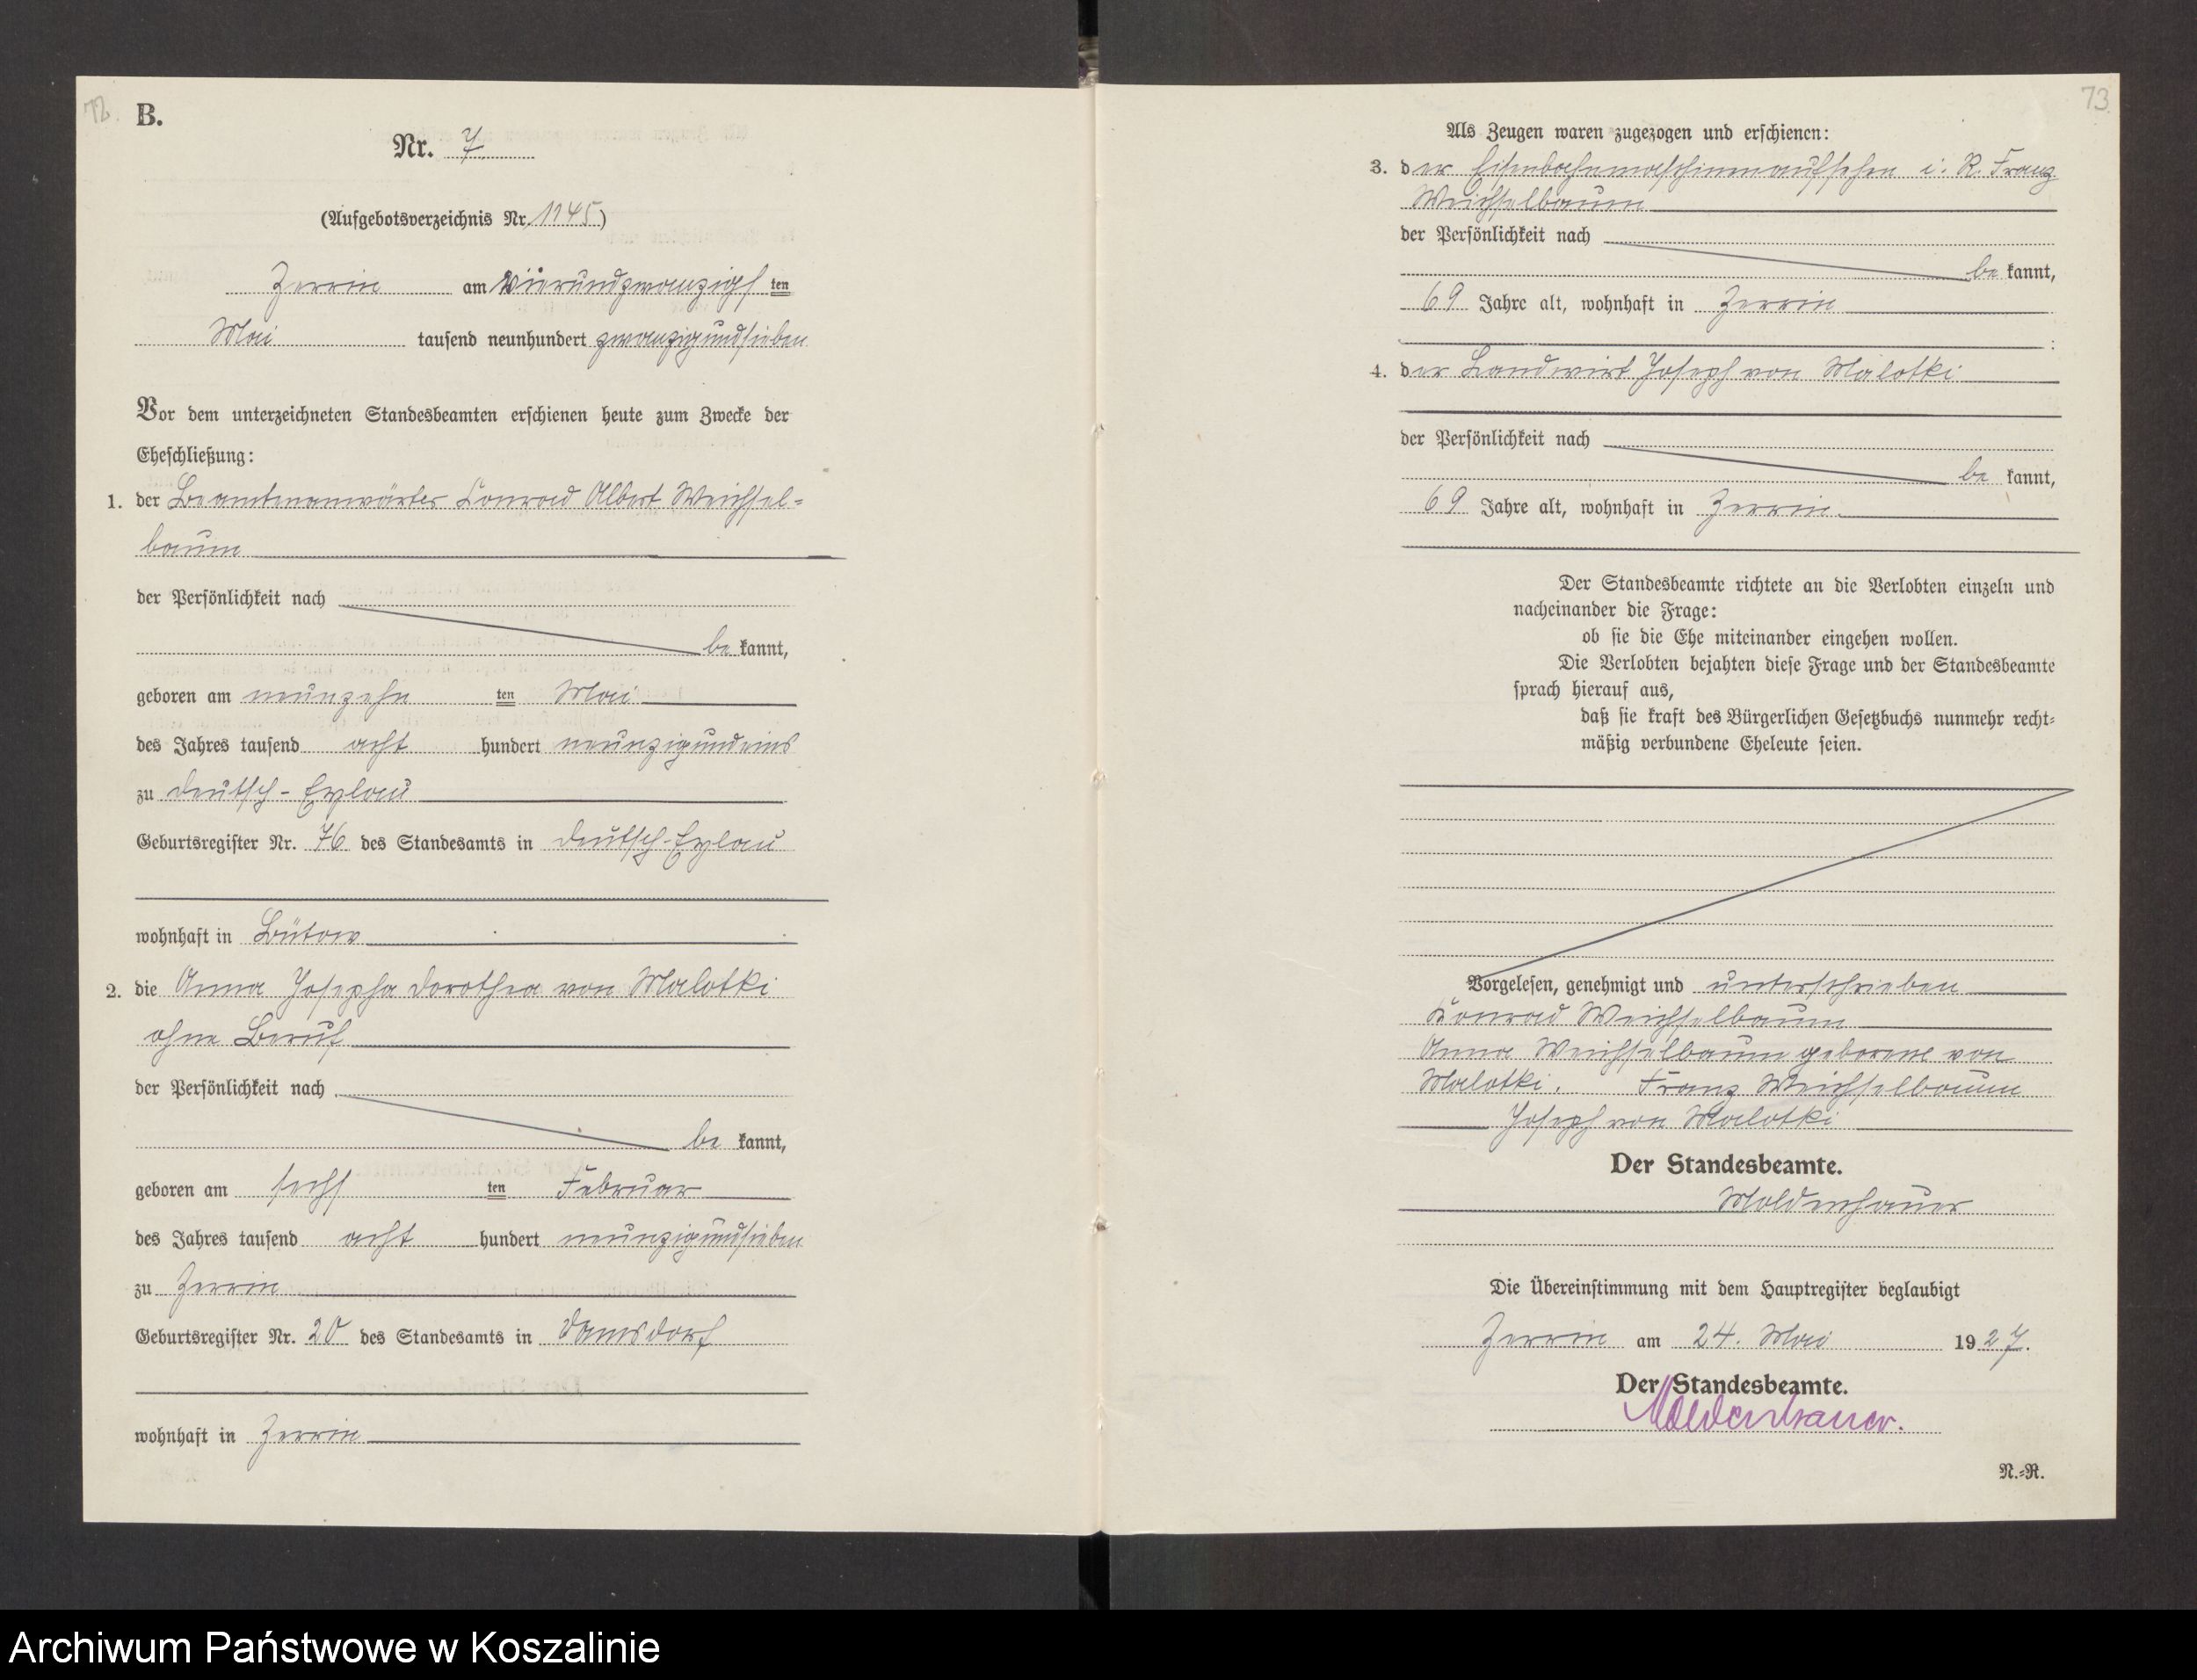 72.
B.
Nr. 7.
(Aufgebotsverzeichnis Nr. 1145)
Zerrin am Vierundzwanzigsten
Mai tausend neunhundert zwanzigundsieben
Vor dem unterzeichneten Standesbeamten erschienen heute zum Zwecke der
Eheschließung:
1. der Beamtenanwärter Konrad Albert Weichsel=
baum
der Persönlichkeit nach
be kannt,
geboren am neunzehn ten Mai
des Jahres tausend acht hundert neunzigundeins
zu Deutsch-Eylau
Geburtsregister Nr. 76 des Standesamts in Deutsch-Eylau
wohnhaft in Bütow
2. die Anna Josepha Dorothea von Malotki
ohne Beruf
der Persönlichkeit nach
be kannt,
geboren am sechs ten Februar
des Jahres tausend acht hundert neunzigundsieben
zu Zerrin
Geburtsregister Nr. 20 des Standesamts in Damsdorf
wohnhaft in Zerrin
73
Als Zeugen waren zugezogen und erschienen:
3. der Eisenbahnmaschinenaufseher i. R. Franz
Weichselbaum
der Persönlichkeit nach
be kannt,
69 Jahre alt, wohnhaft in Zerrin
;
4. der Landwirt Joseph von Malotki
der Persönlichkeit nach
be kannt,
69 Jahre alt, wohnhaft in Zerrin.
Der Standesbeamte richtete an die Verlobten einzeln und
nacheinander die Frage:
ob sie die Ehe miteinander eingehen wollen.
Die Verlobten bejahten diese Frage und der Standesbeamte
sprach hierauf aus,
daß sie kraft des Bürgerlichen Gesetzbuchs nunmehr recht=
mäßig verbundene Eheleute seien.
Vorgelesen, genehmigt und unterschrieben
Konrad Weichselbaum
Anna Weichselbaum geborene von
Malotki. Franz Weichselbaum
Joseph von Malotki
Der Standesbeamte.
Moldenhauer
Die Übereinstimmung mit dem Hauptregister beglaubigt
Zerrin am 24. Mai 1927.
Der Standesbeamte.
Moldenhauer.
N.=R.
Archiwum Państwowe w Koszalinie